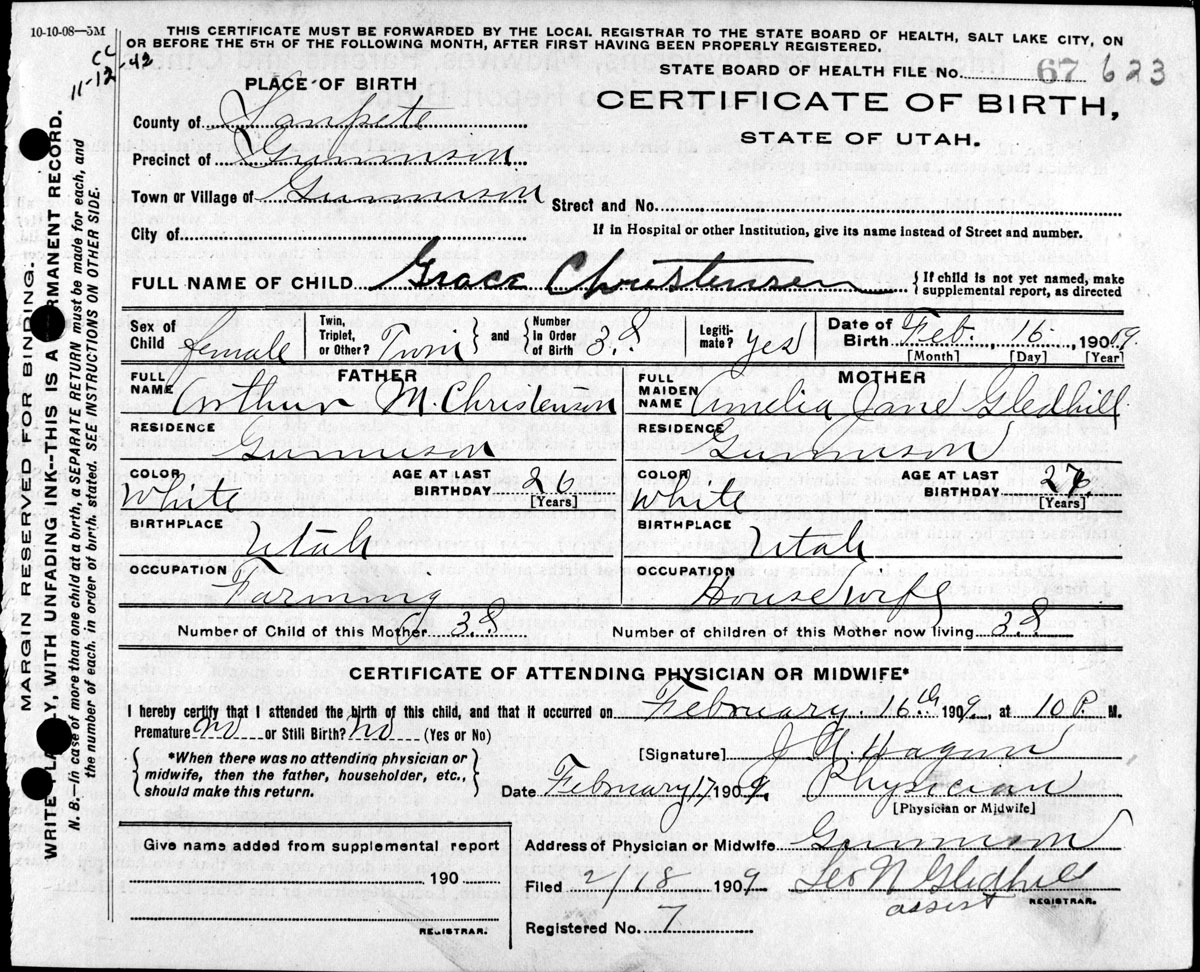 10-10-08—5M
THIS CERTIFICATE MUST BE FORWARDED BY THE LOCAL REGISTRAR TO THE STATE BOARD OF HEALTH, SALT LAKE CITY, ON
OR BEFORE THE 5TH OF THE FOLLOWING MONTH, AFTER FIRST HAVING BEEN PROPERLY REGISTERED.
11-12-42
STATE BOARD OF HEALTH FILE No. 67 623
PLACE OF BIRTH
CERTIFICATE OF BIRTH,
STATE OF UTAH.
County of Sanpete
Precinct of Gunnison
Town or Village of Gunnison
Street and No.
City of
If in Hospital or other Institution, give its name instead of Street and number.
FULL NAME OF CHILD Grace Christensen { If child is not yet named, make supplemental report, as directed
Sex of Child female Twin, Triplet, or Other? Twin } and { Number In Order of Birth 3 Legitimate? Yes Date of Birth Feb. 16, 1909
[Month] [Day] [Year]
FATHER
MOTHER
FULL NAME Arthur M. Christenson
FULL MAIDEN NAME Amelia Jane Gledhill
RESIDENCE Gunnison
RESIDENCE Gunnison
COLOR White AGE AT LAST BIRTHDAY 26 [Years]
COLOR White AGE AT LAST BIRTHDAY [Years]
BIRTHPLACE Utah
BIRTHPLACE Utah
OCCUPATION Farming
OCCUPATION Housewife
Number of Child of this Mother 3
Number of children of this Mother now living 3
CERTIFICATE OF ATTENDING PHYSICIAN OR MIDWIFE*
I hereby certify that I attended the birth of this child, and that it occurred on February 16th 1909, at 10 P. M.
Premature No or Still Birth? No (Yes or No)
{ *When there was no attending physician or midwife, then the father, householder, etc., should make this return. }
[Signature] Hagan
Date February 17 1909. Physician
[Physician or Midwife]
Give name added from supplemental report
190
REGISTRAR.
Address of Physician or Midwife Gunnison
Filed 2/18 1909 Leo N Gledhill
assist REGISTRAR.
Registered No. 7
MARGIN RESERVED FOR BINDING.
WRITE PLAINLY, WITH UNFADING INK—THIS IS A PERMANENT RECORD.
N. B.—In case of more than one child at a birth, a SEPARATE RETURN must be made for each, and
the number of each, in order of birth, stated. SEE INSTRUCTIONS ON OTHER SIDE.